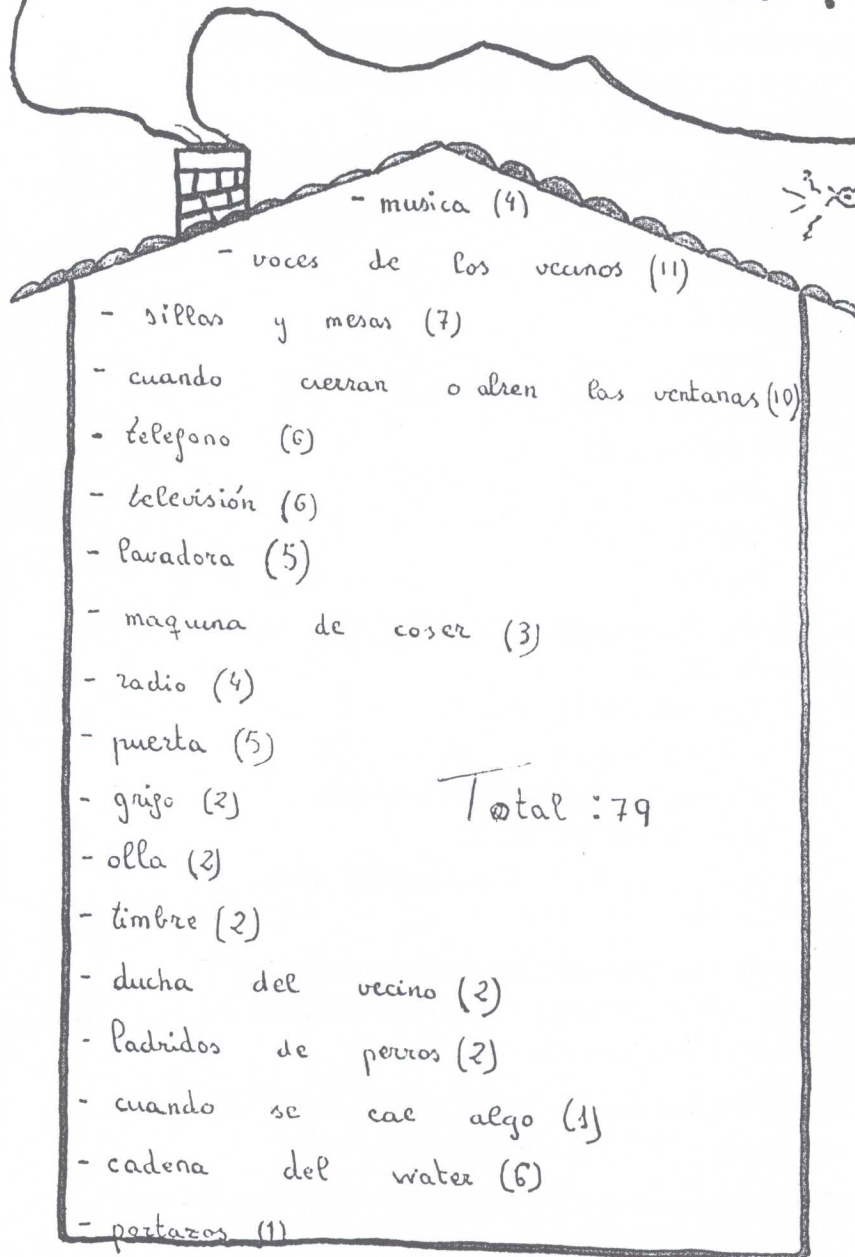 - musica (4)
- voces de los vecinos (11)
- sillas y mesas (7)
- cuando cierran o abren las ventanas (10)
- telefono (6)
- televisión (6)
- lavadora (5)
- maquina de coser (3)
- radio (4)
- puerta (5)
- grifo (2)
Total : 79
- olla (2)
- timbre (2)
- ducha del vecino (2)
- ladridos de perros (2)
- cuando se cae algo (1)
- cadena del water (6)
- portazos (1)